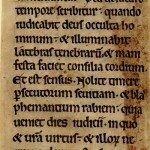 tempore scribitur · quando
iudicabit deus occulta ho
minum · & illuminabit
latebras tenebrarū & mani
festa faciet consilia cordium.
Et est sensus. Nolite timere
psecutorum seuitiam · & bla
phemantium rabiem · quia
ueniet dies iudicii · in quo
& ura uirtus · & illor̄ ne